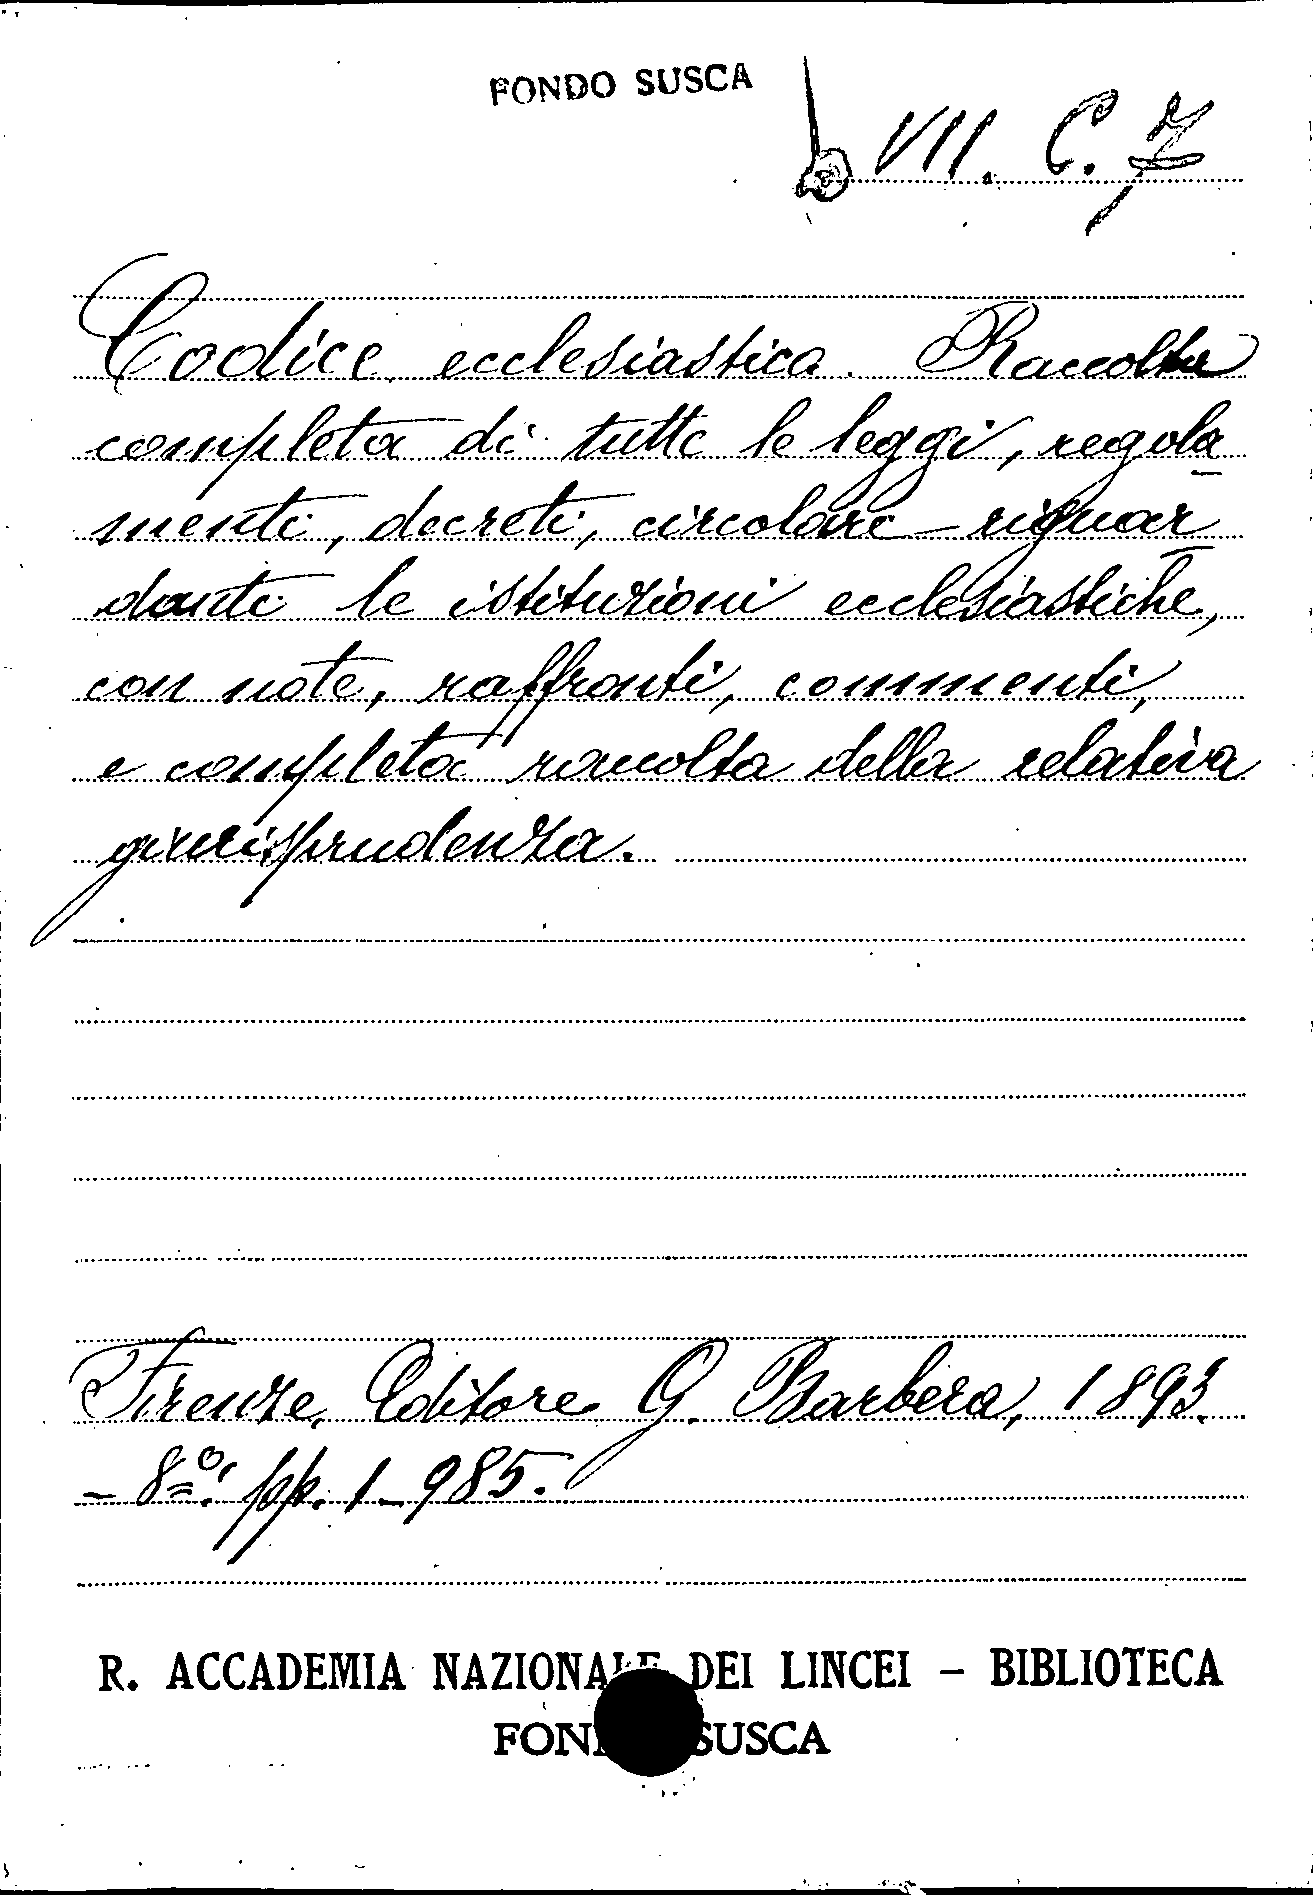 FONDO SUSCA
VII. C. 7
Codice ecclesiastica. Raccolta
completa di tutte le leggi, regola
menti, decreti, circolari – riguar
danti le istituzioni ecclesiastiche,
con note, raffronti, commenti,
e completa raccolta della relativa
giurisprudenza.
Firenze, Editore G. Barbera, 1893.
– 8º. pp. 1–985.
R. ACCADEMIA NAZIONALE DEI LINCEI – BIBLIOTECA
FONDO SUSCA